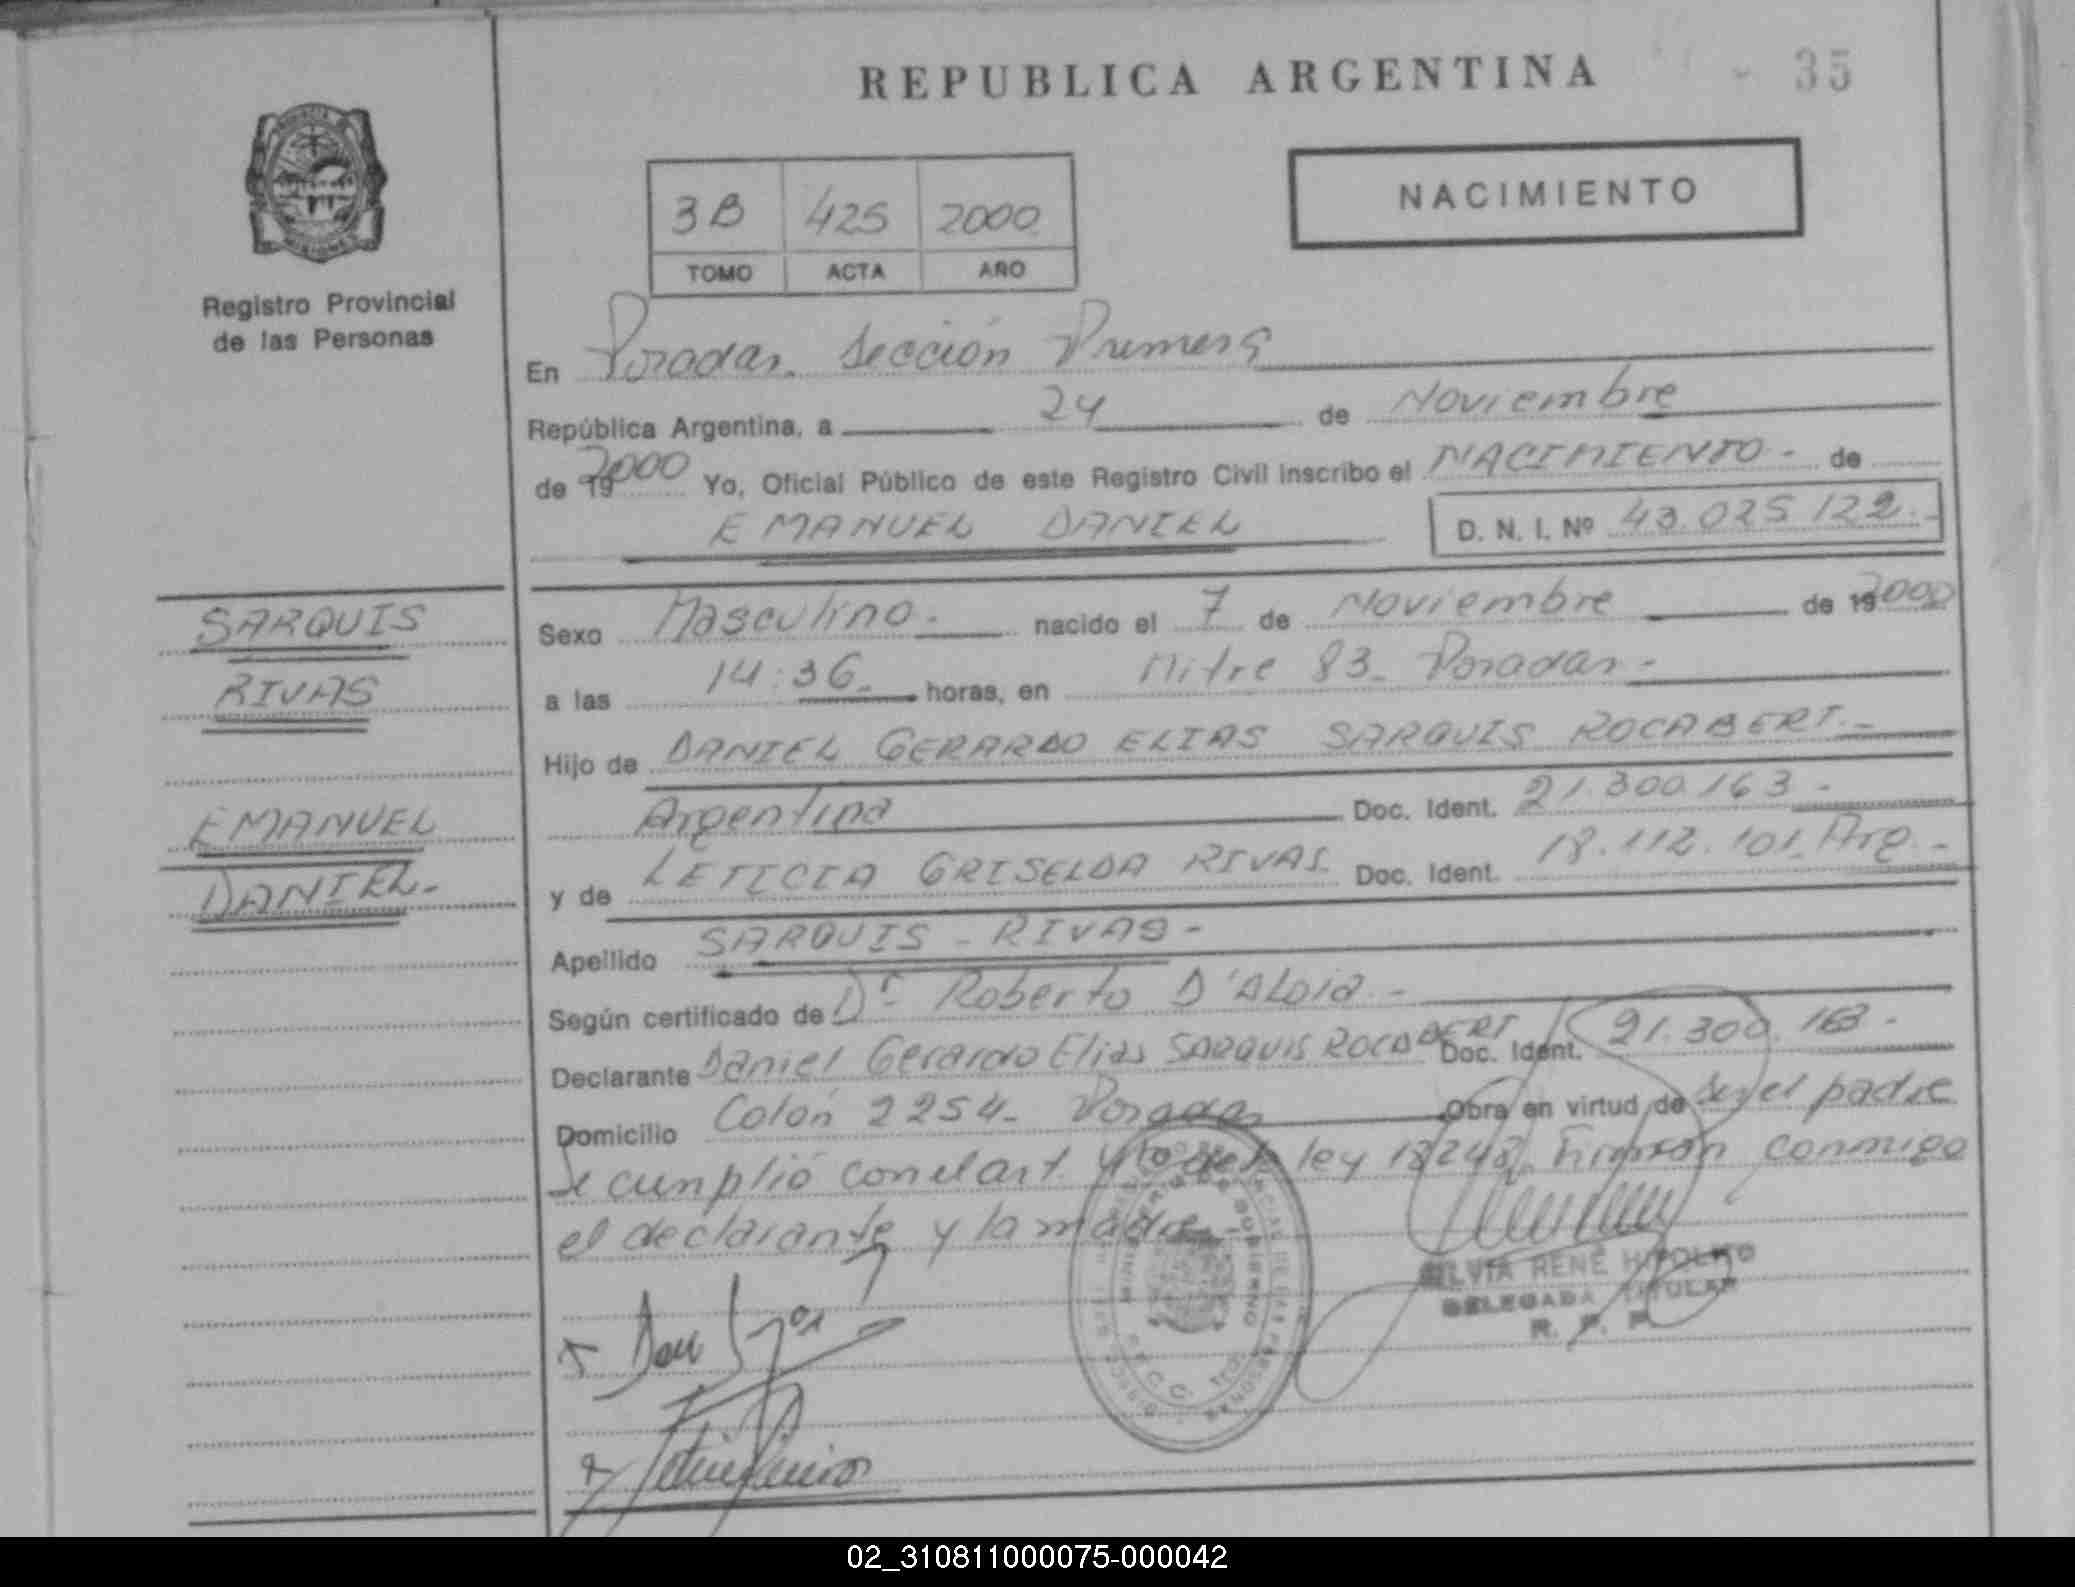 REPUBLICA ARGENTINA
- 35
NACIMIENTO
3B 425 2000
TOMO ACTA AÑO
Registro Provincial
de las Personas
En Posadas. Sección Primera
República Argentina, a 24 de Noviembre
de 19 2000 Yo, Oficial Público de este Registro Civil inscribo el NACIMIENTO - de
EMANUEL DANIEL D. N. I. Nº 43.025.122.-
SARQUIS
RIVAS
EMANUEL
DANIEL.-
Sexo Masculino.- nacido el 7 de Noviembre de 19 2000
a las 14:36.- horas, en Mitre 83. Posadas.-
Hijo de DANIEL GERARDO ELIAS SARQUIS ROCABERT.-
Argentina Doc. Ident. 21.300.163.-
y de LETICIA GRISELDA RIVAS Doc. Ident. 18.112.101. Arg.-
Apellido SARQUIS - RIVAS -
Según certificado de Dr Roberto D'Aloia.-
Declarante Daniel Gerardo Elias SARQUIS ROCABERT Doc. Ident. 21.300.163.-
Domicilio Colón 2254. Posadas Obra en virtud de ser el padre
Se cumplió con el art. ley 18248. Firman conmigo
el declarante y la madre.-
SILVIA RENÉ HIPOLITO
DELEGADA TITULAR
R. P. P.
02_310811000075-000042